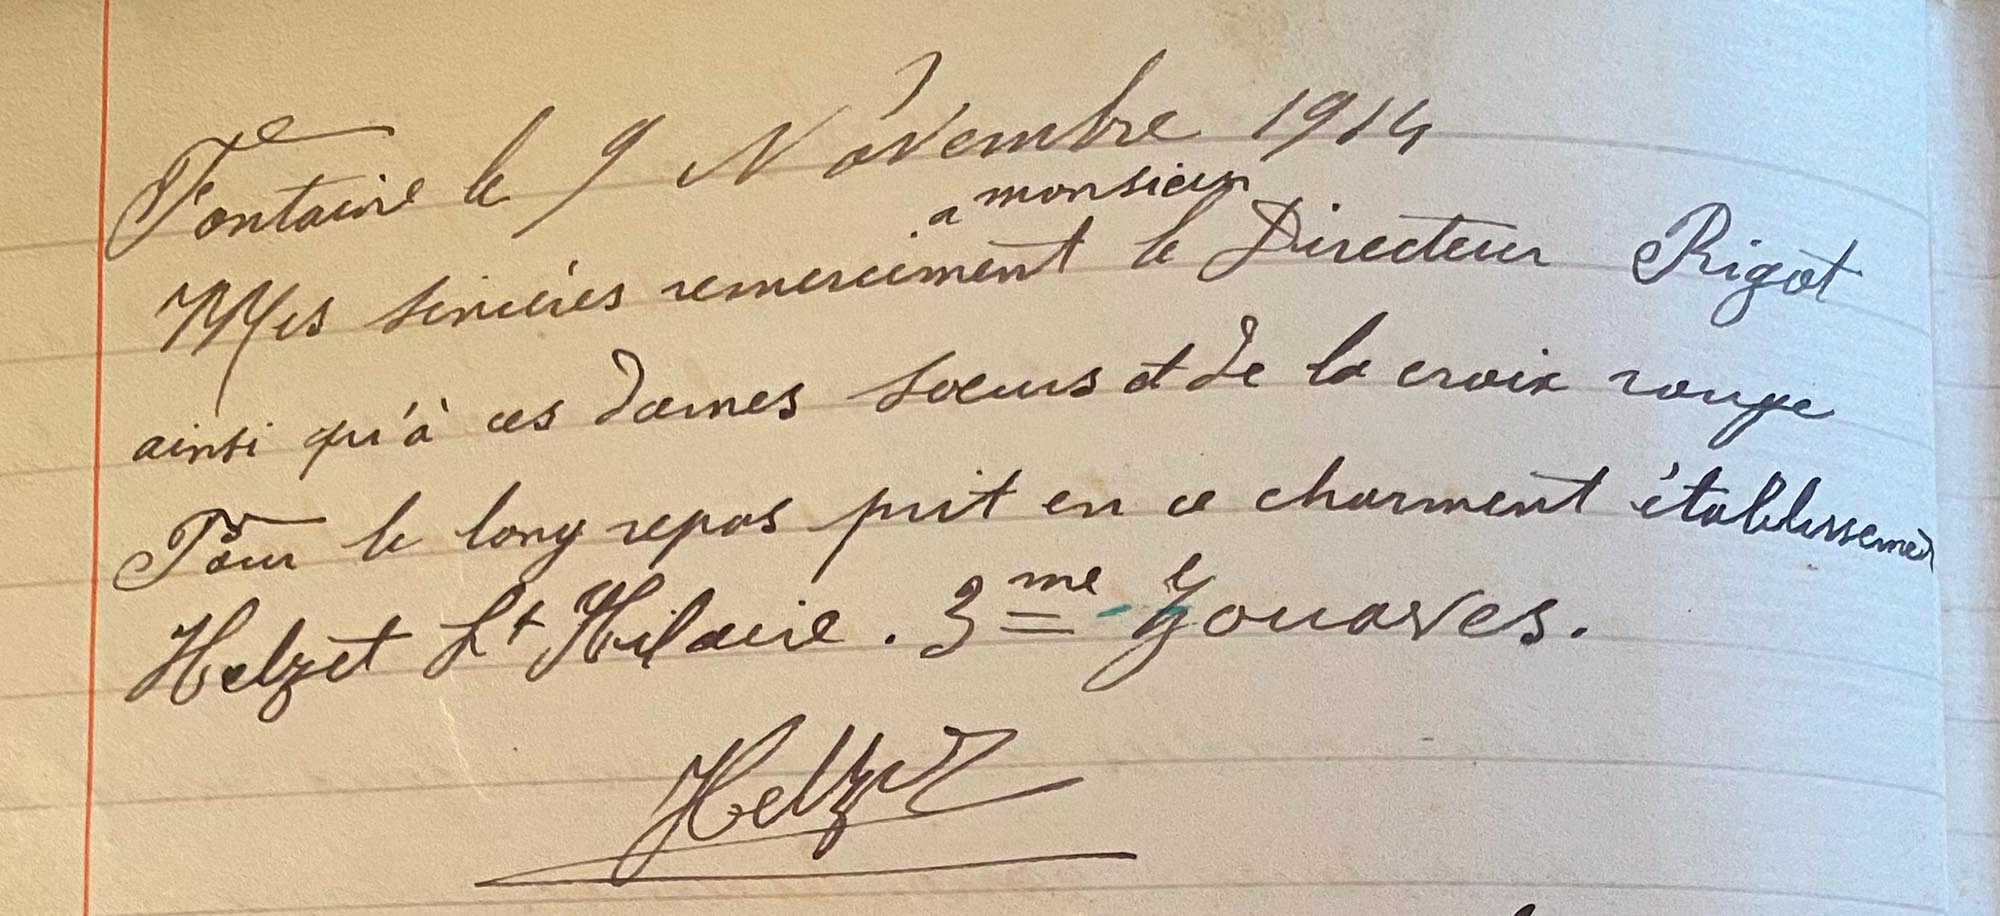 Fontaine le 9 Novembre 1914
a monsieur
Mes sincères remerciment le Directeur Rigot
ainsi qu'à ces dames soeurs et de la croix rouge
Pour le long repos prit en ce charment établissement
Helzet St Hilaire. 3me Zouaves.
Helzet